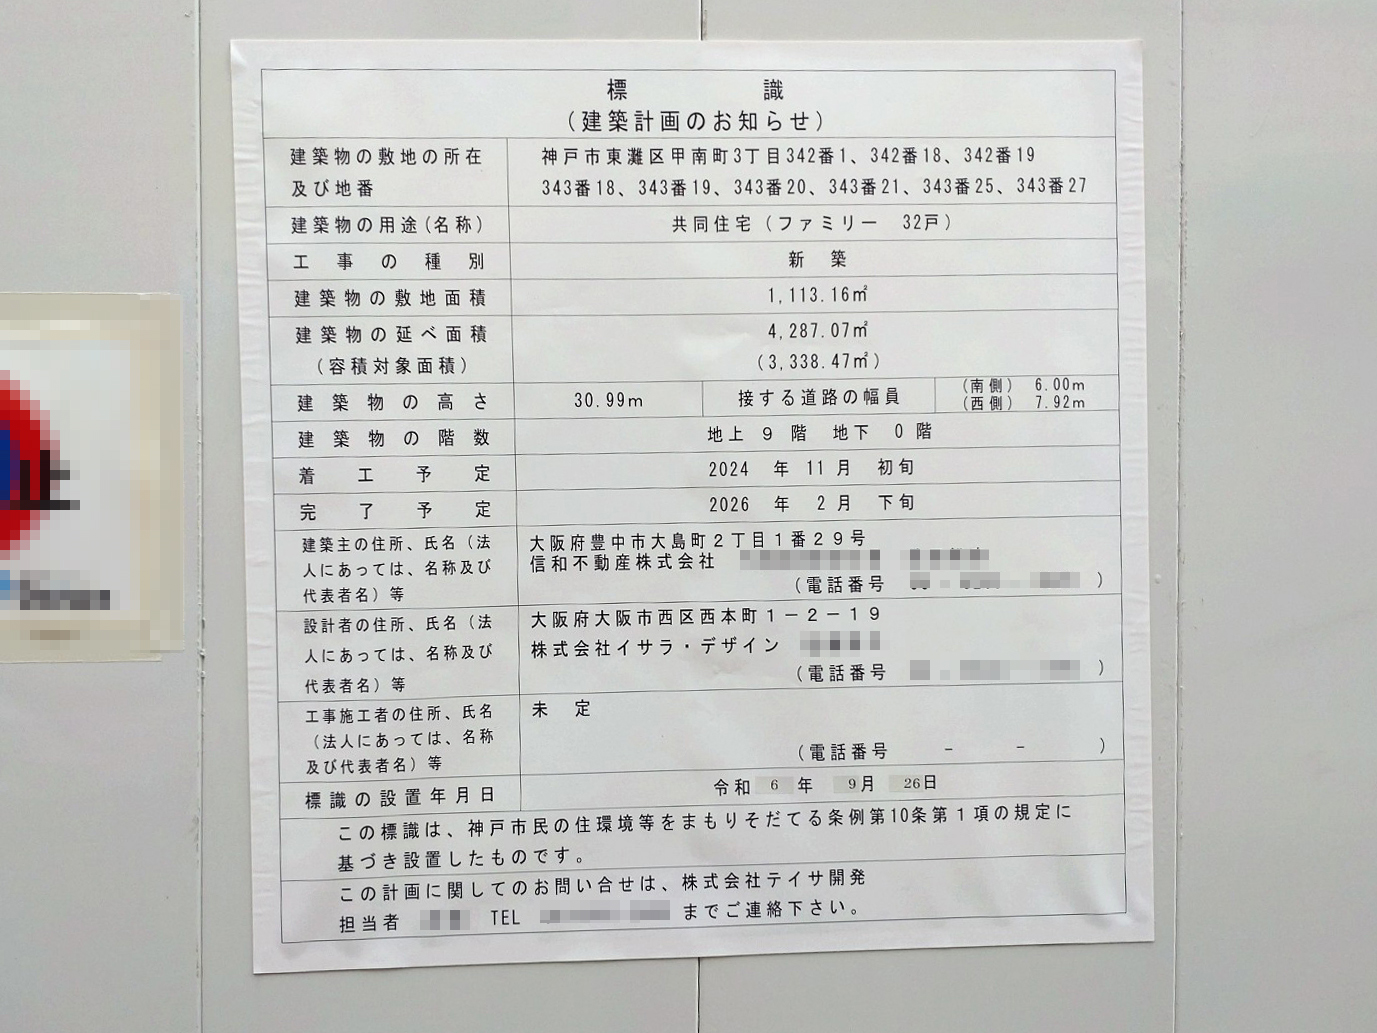 標 識
(建築計画のお知らせ)
建築物の敷地の所在 神戸市東灘区甲南町3丁目342番1、342番18、342番19
及び地番 343番18、343番19、343番20、343番21、343番25、343番27
建築物の用途(名称) 共同住宅(ファミリー 32戸)
工事の種別 新 築
建築物の敷地面積 1,113.16㎡
建築物の延べ面積 4,287.07㎡
(容積対象面積) (3,338.47㎡)
建築物の高さ 30.99m 接する道路の幅員 (南側) 6.00m
(西側) 7.92m
建築物の階数 地上 9 階 地下 0 階
着工予定 2024 年 11 月 初旬
完了予定 2026 年 2 月 下旬
建築主の住所、氏名(法 大阪府豊中市大島町2丁目1番29号
人にあっては、名称及び 信和不動産株式会社
代表者名)等 (電話番号 )
設計者の住所、氏名(法 大阪府大阪市西区西本町1-2-19
人にあっては、名称及び 株式会社イサラ・デザイン
代表者名)等 (電話番号 )
工事施工者の住所、氏名 未 定
(法人にあっては、名称
及び代表者名)等 (電話番号 - - )
標識の設置年月日 令和 6 年 9月 26日
この標識は、神戸市民の住環境等をまもりそだてる条例第10条第1項の規定に
基づき設置したものです。
この計画に関してのお問い合せは、株式会社テイサ開発
担当者 TEL までご連絡下さい。